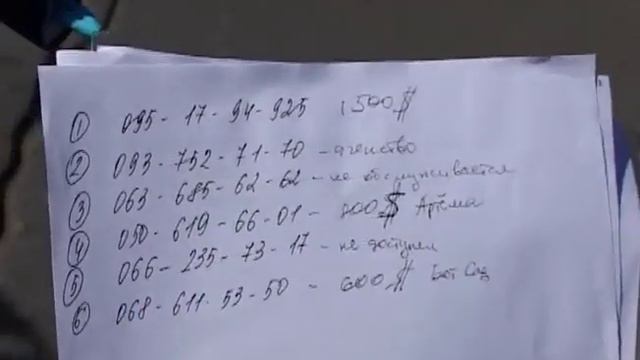 ① 095-17-94-925 1500$
② 093-752-71-70 - агенство
③ 063-685-62-62 - не обслуживается
④ 050-619-66-01 - 800$ Артёма
⑤ 066-235-73-17 - не доступен
⑥ 068-611-53-50 - 600$ Бот Сад